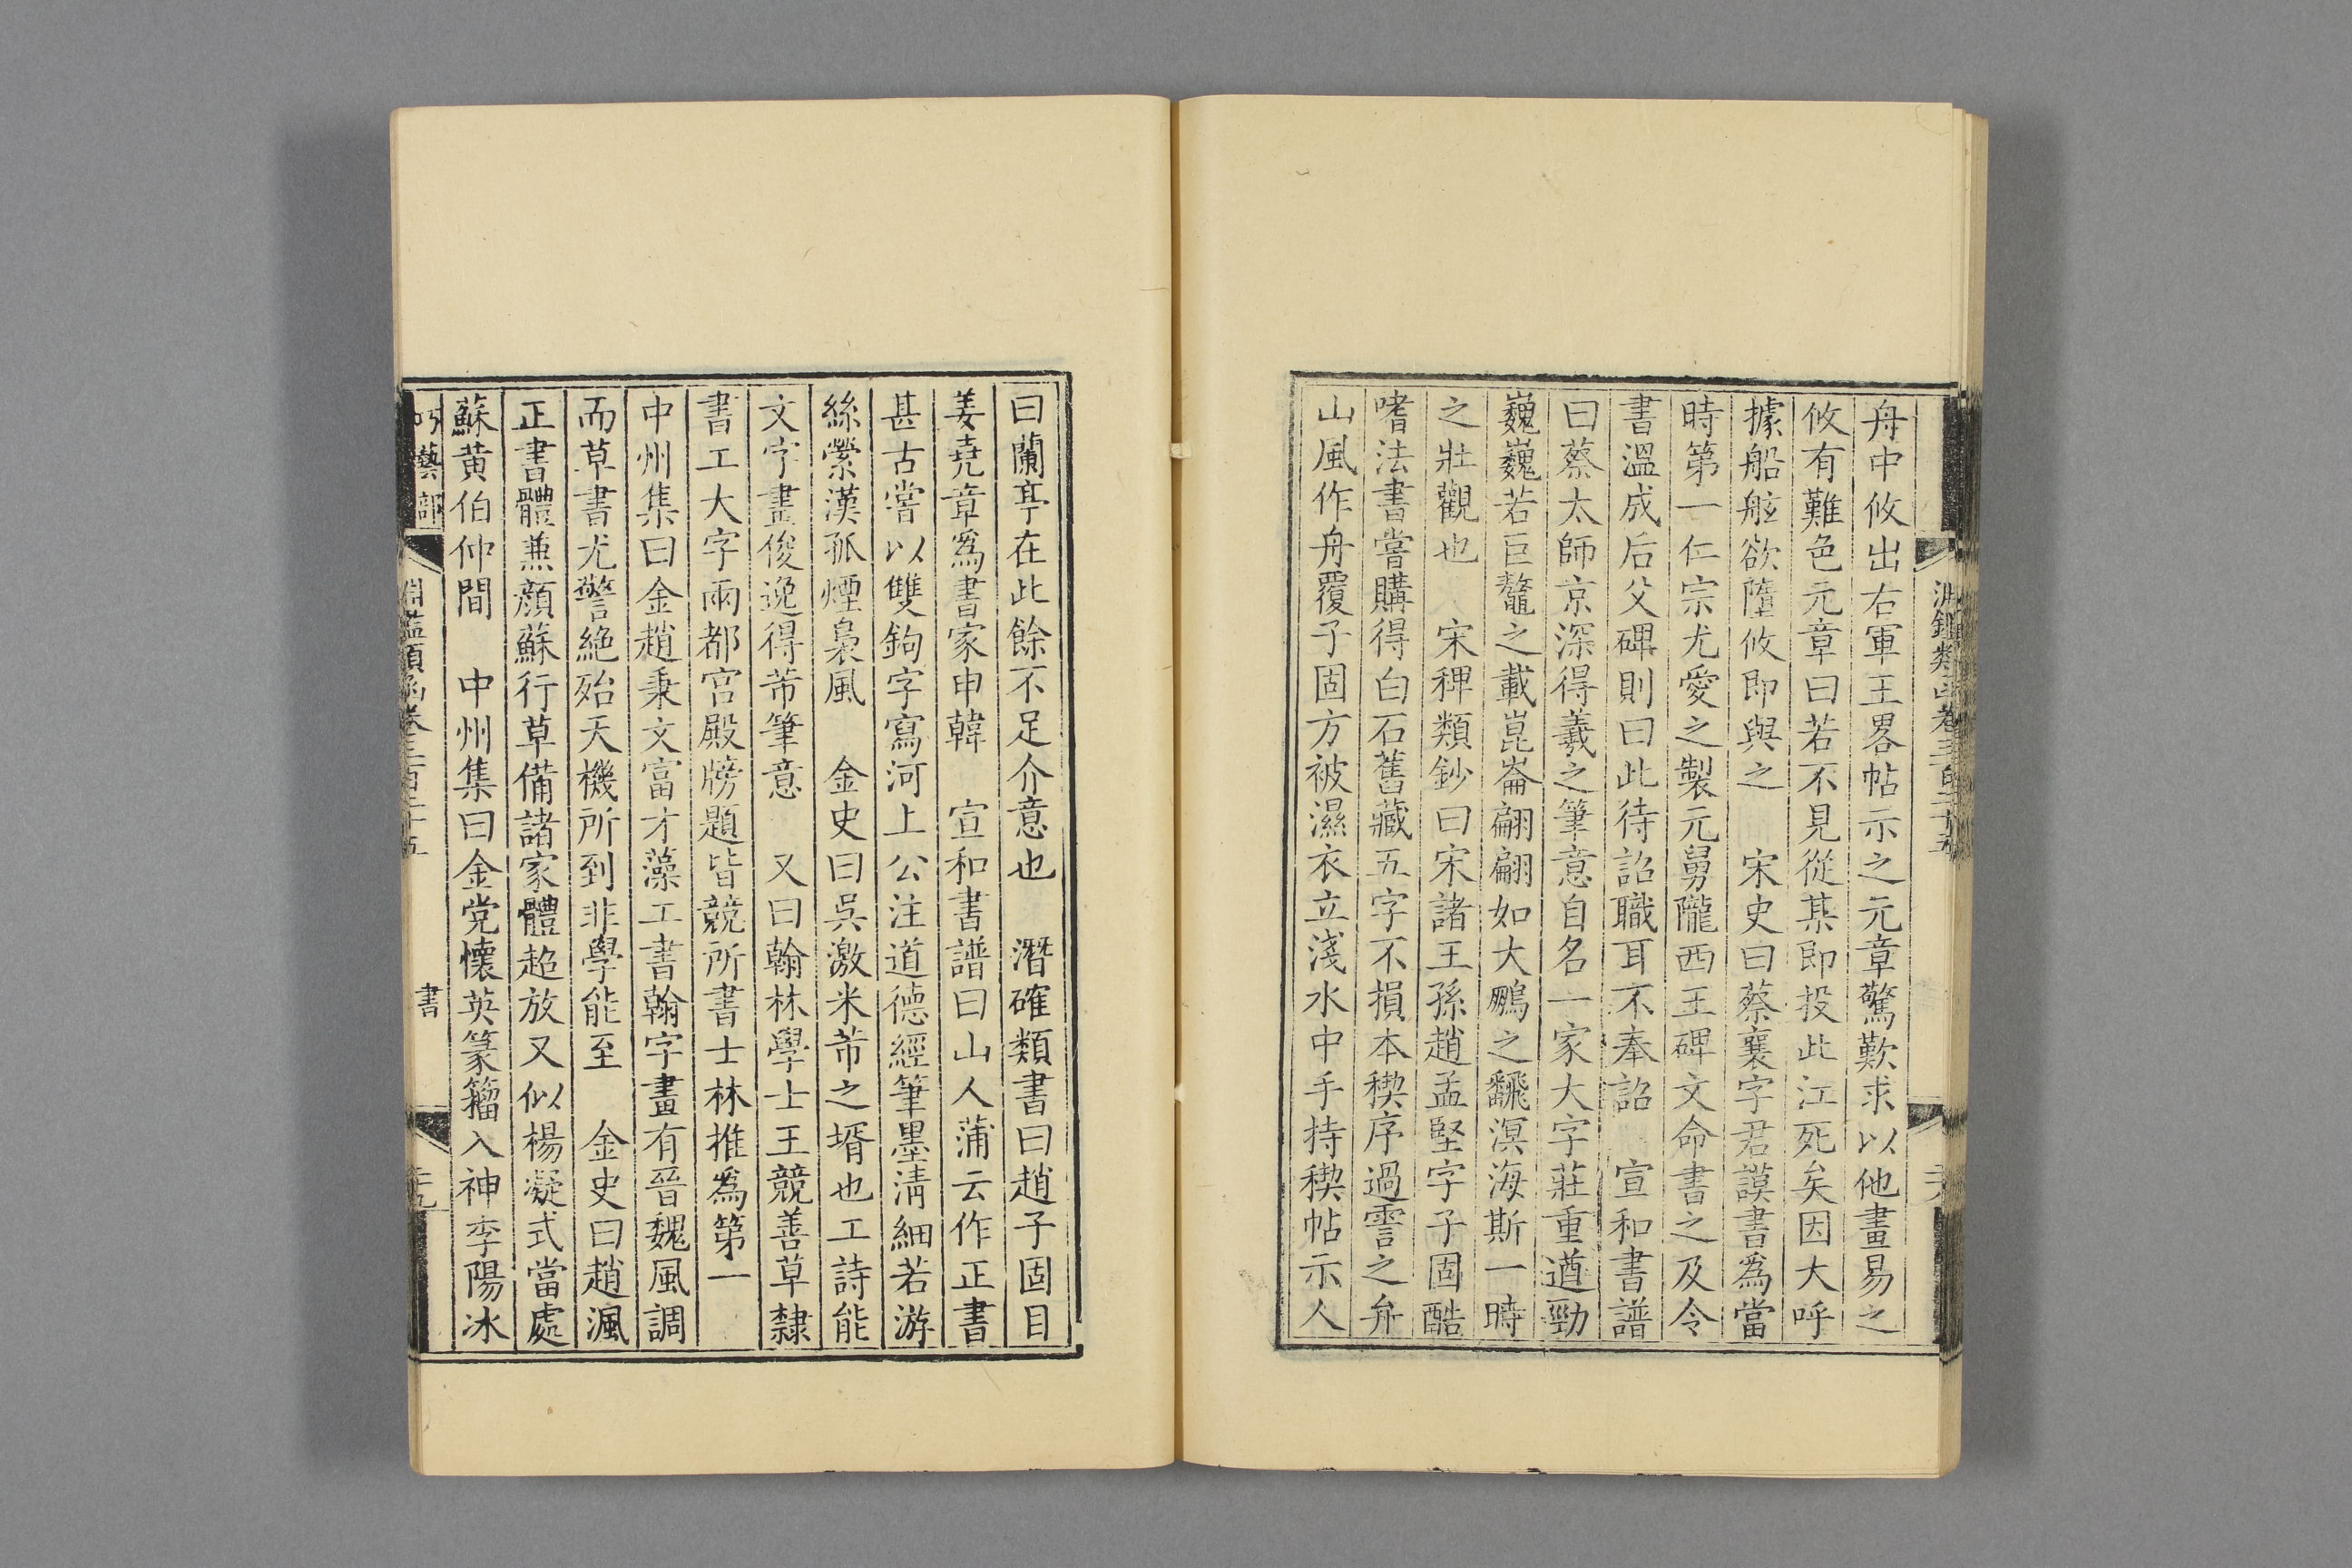 舟中攸出右軍王畧帖示之元章驚歎求以他畫易之
攸有難色元章曰若不見從某即投此江死矣因大呼
據船舷欲墮攸即與之　宋史曰蔡襄字君謨書爲當
時第一仁宗尤愛之製元舅隴西王碑文命書之及令
書溫成后父碑則曰此待詔職耳不奉詔　宣和書譜
曰蔡太師京深得羲之筆意自名一家大字莊重遒勁
巍巍若巨鼇之載崑崙翩翩如大鵬之飜溟海斯一時
之壯觀也　宋稗類鈔曰宋諸王孫趙孟堅字子固酷
嗜法書嘗購得白石舊藏五字不損本稧序過霅之弁
山風作舟覆子固方被濕衣立淺水中手持稧帖示人
曰蘭亭在此餘不足介意也　潛確類書曰趙子固目
姜堯章爲書家申韓　宣和書譜曰山人蒲云作正書
甚古嘗以雙鉤字寫河上公注道德經筆墨淸細若游
絲縈漢孤煙裊風　金史曰吳激米芾之壻也工詩能
文字畫俊逸得芾筆意　又曰翰林學士王競善草隸
書工大字兩都宮殿牓題皆競所書士林推爲第一
中州集曰金趙秉文富才藻工書翰字畫有晉魏風調
而草書尤警絕殆天機所到非學能至　金史曰趙渢
正書體兼顏蘇行草備諸家體超放又似楊凝式當處
蘇黃伯仲間　中州集曰金党懷英篆籀入神李陽冰
巧藝部　淵鑑類函卷三百二十五　書　二十九